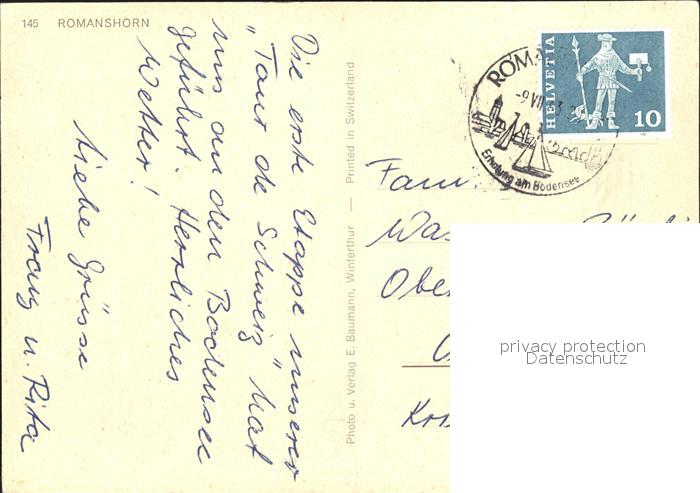 145 ROMANSHORN
Die erste Etappe unserer
„Tour de Schweiz" hat
uns an den Bodensee
geführt. Herrliches
Wetter!
Liebe Grüsse
Franz u. Rita
Photo u. Verlag E. Baumann, Winterthur — Printed in Switzerland
HELVETIA
10
Erholung am Bodensee
Fam.
privacy protection
Datenschutz